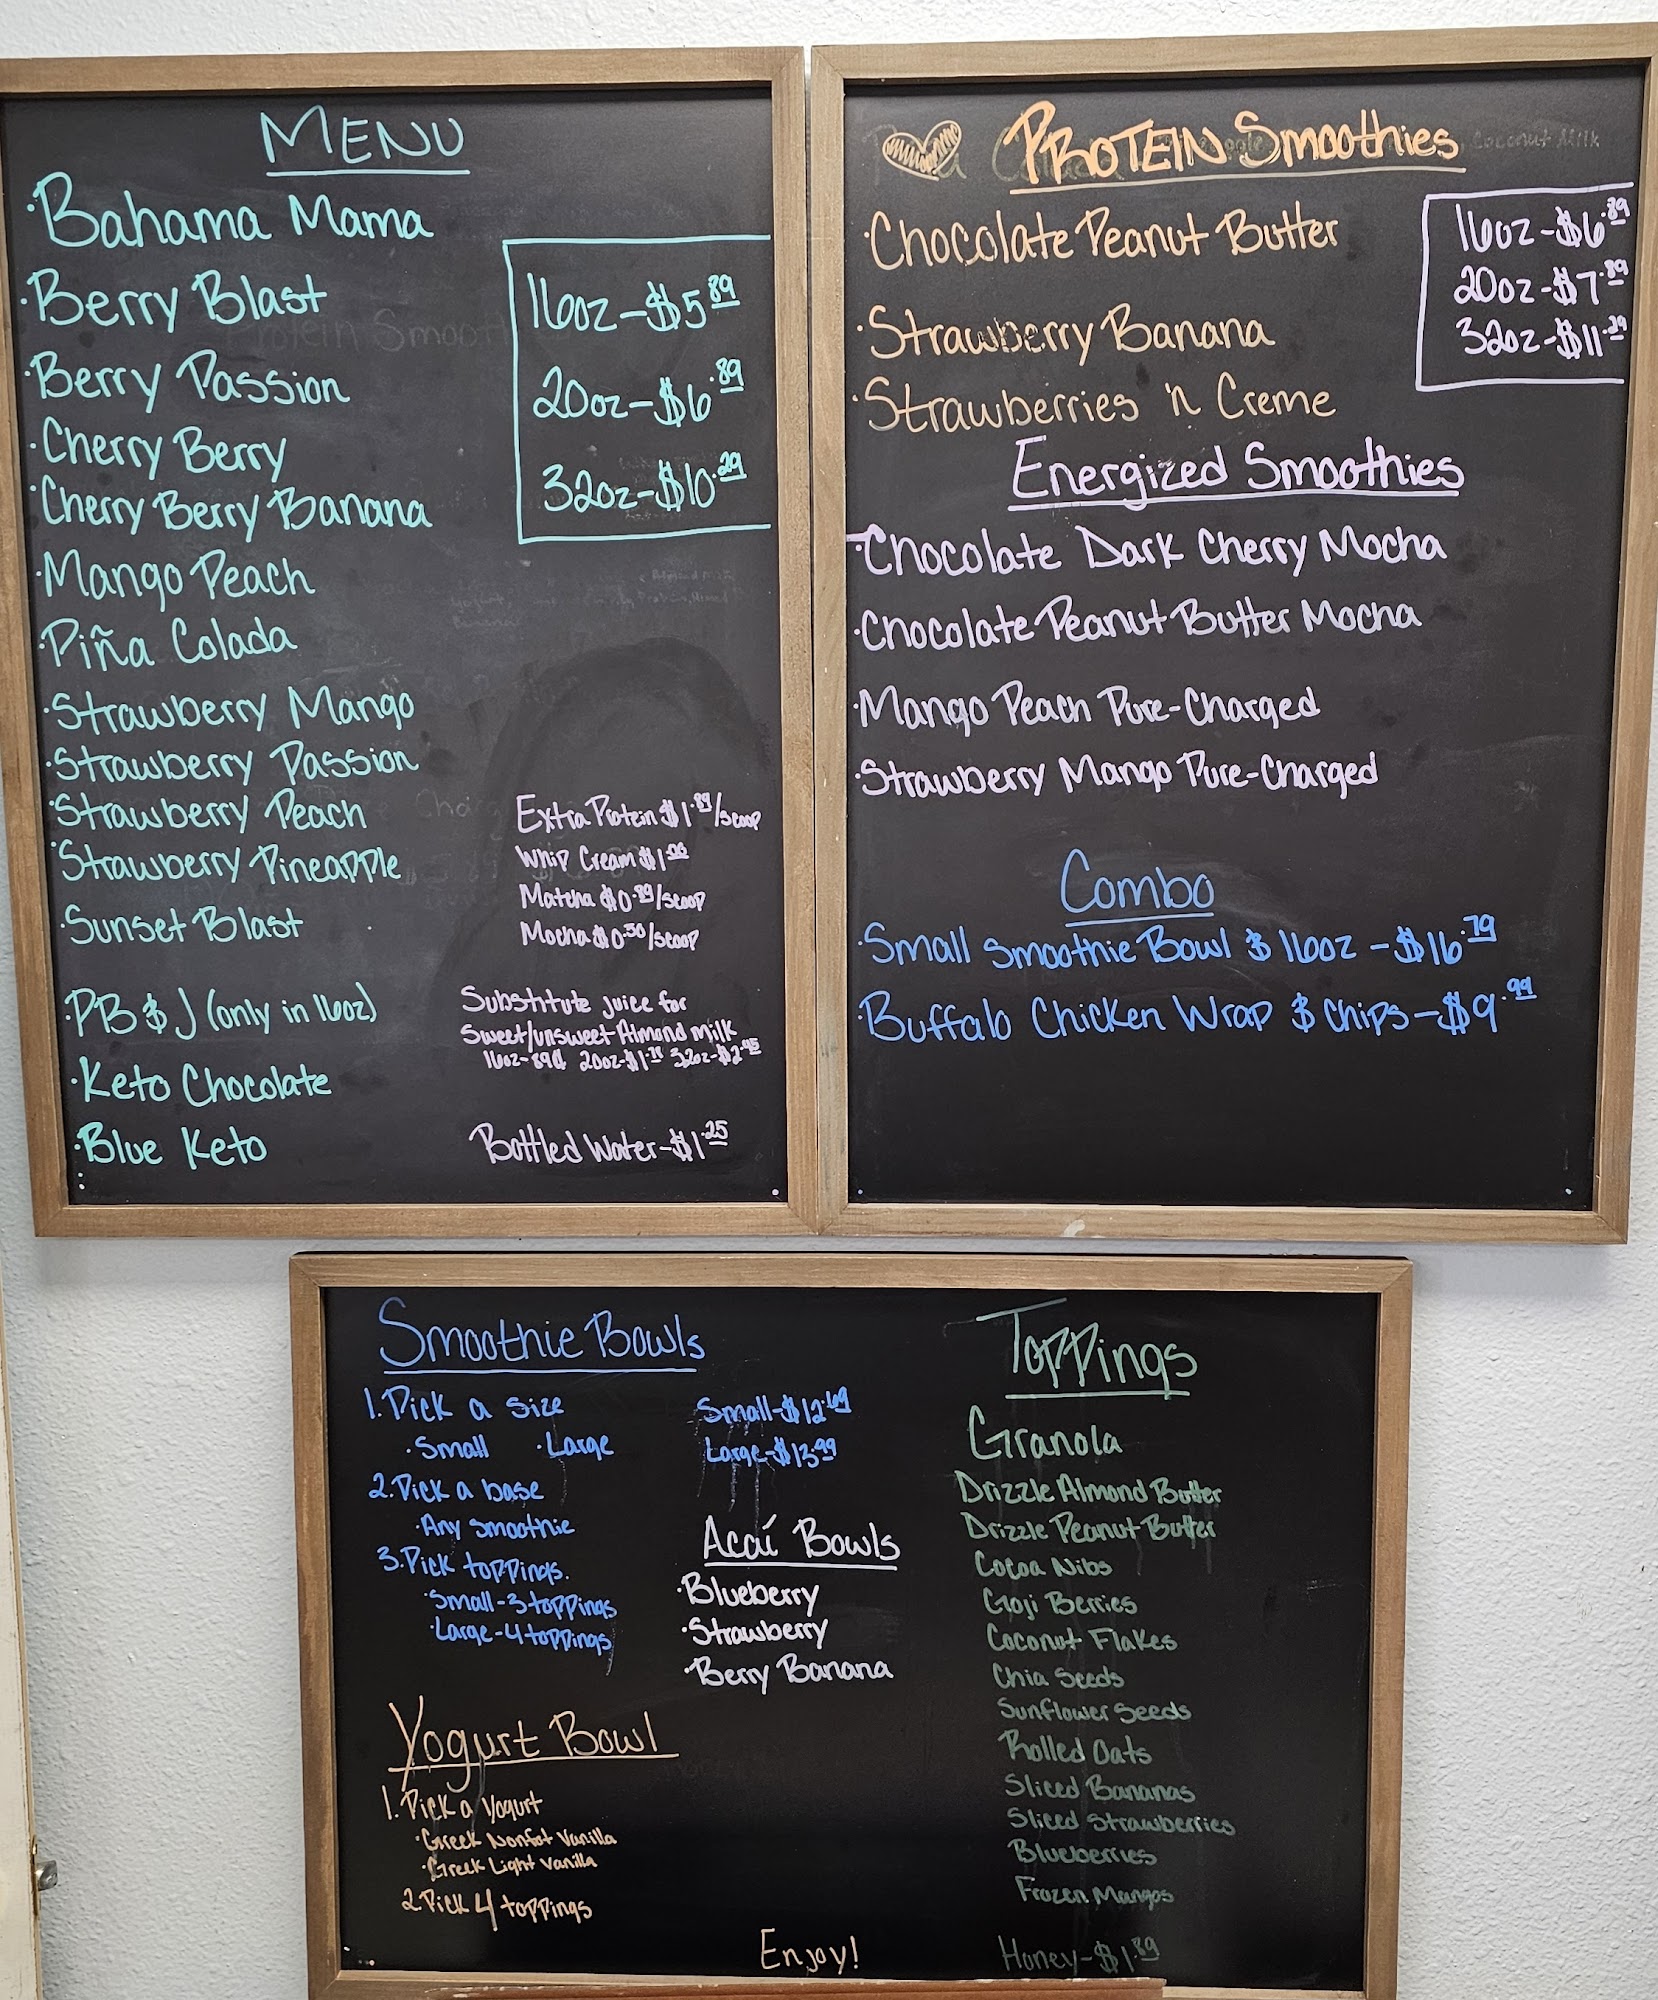 MENU
·Bahama Mama
·Berry Blast
·Berry Passion
·Cherry Berry
·Cherry Berry Banana
·Mango Peach
·Piña Colada
·Strawberry Mango
·Strawberry Passion
·Strawberry Peach
·Strawberry Pineapple
·Sunset Blast
·PB & J (only in 16oz)
·Keto Chocolate
·Blue Keto
16oz-$5.89
20oz-$6.89
32oz-$10.29
Extra Protein $1.89/scoop
Whip Cream $1
Matcha $0.89/scoop
Mocha $0.50/scoop
Substitute juice for
Sweet/unsweet Almond Milk
16oz-89¢ 20oz-$1 32oz-$2
Bottled Water-$1.25
PROTEIN Smoothies
Coconut Milk
·Chocolate Peanut Butter
·Strawberry Banana
·Strawberries 'n Creme
16oz-$6.89
20oz-$7.89
32oz-$11.29
Energized Smoothies
·Chocolate Dark Cherry Mocha
·Chocolate Peanut Butter Mocha
·Mango Peach Pure-Charged
·Strawberry Mango Pure-Charged
Combo
·Small Smoothie Bowl & 16oz -$16.79
·Buffalo Chicken Wrap & Chips-$9.99
Smoothie Bowls
1.Pick a size
·Small ·Large
2.Pick a base
·Any smoothie
3.Pick toppings.
·Small-3 toppings
·Large-4 toppings
Small-$12.69
Large-$13.99
Acaí Bowls
·Blueberry
·Strawberry
·Berry Banana
Yogurt Bowl
1.Pick a yogurt
·Greek Nonfat Vanilla
·Greek Light Vanilla
2.Pick 4 toppings
Enjoy!
Toppings
Granola
Drizzle Almond Butter
Drizzle Peanut Butter
Cocoa Nibs
Goji Berries
Coconut Flakes
Chia Seeds
Sunflower Seeds
Rolled Oats
Sliced Bananas
Sliced Strawberries
Blueberries
Frozen Mangos
Honey-$1.89